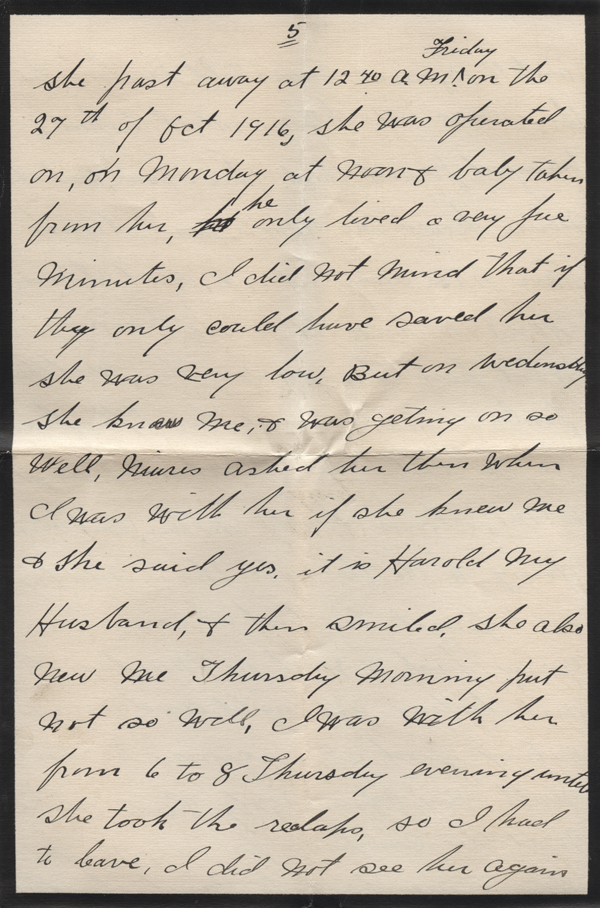 5
Friday
she past away at 12 40 A.M. on the
27th of Oct 1916, she was operated
on, on Monday at noon & baby taken
from her, he only lived a very fue
minutes, I did not mind that if
they only could have saved her
she was very low, But on Wedensday
she knows me, & was geting on so
well, Nures asked her then when
I was with her if she knew me
& she said yes, it is Harold my
Husband, & then smiled, she also
new me Thursday morning put
not so will, I was with her
from 6 to 8 Thursday evening until
she took the redaps, so I had
to leave, I did not see her again